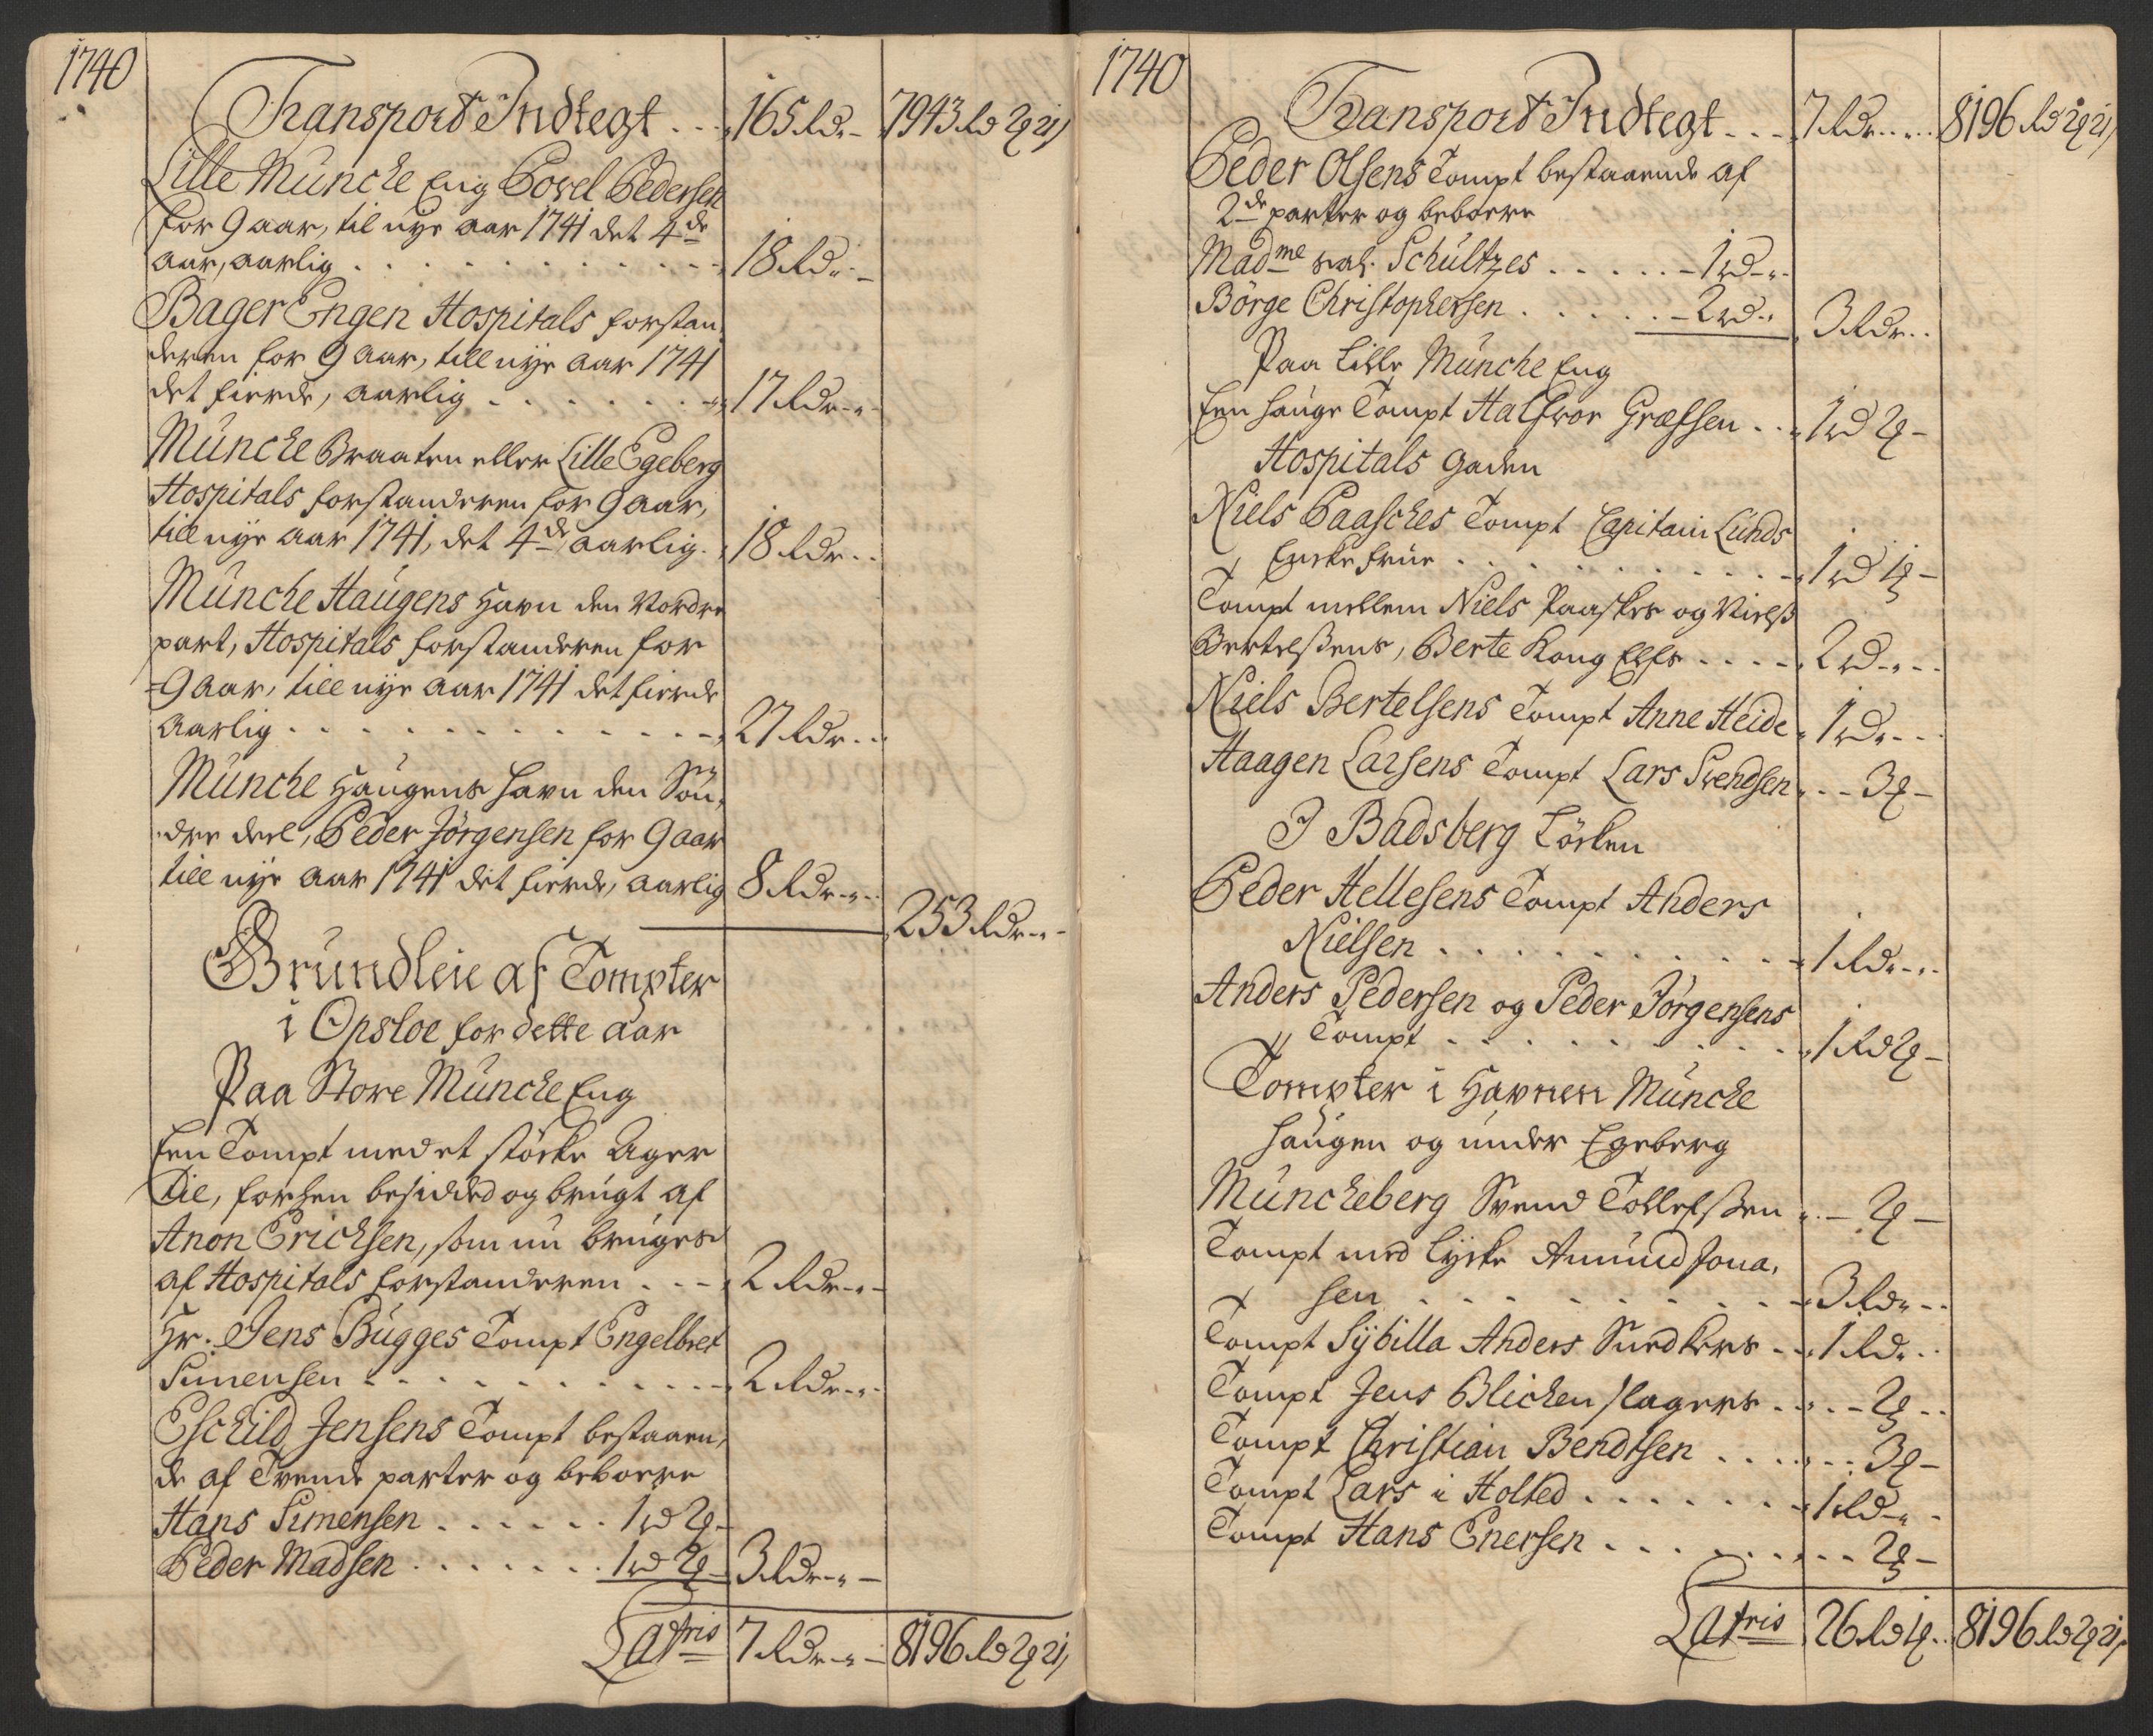 1740
Transport Indtegt . . . 165 Rdr. - 7943 Rd 2 ₰ 21
Lille Müncke Eng Povel Pedersen
for 9 aar, til nye aar 1741 det 4de
aar, aarlig . . . 18 Rdr. -
Bager Engen Hospitals forstan
deren for 9 aar, till nye aar 1741
det fierde, aarlig . . . 17 Rdr. -
Müncke Braaten eller Lille Egeberg
Hospitals forstanderen for 9 aar,
till nye aar 1741, det 4de aarlig. 18 Rdr. .
Müncke Haügens Havn den Nordre
part, Hospitals forstanderen for
=9 aar, till nye aar 1741 det fierde
aarlig . . . 27 Rdr. .
Müncke Haügens Havn den Søn,
dre deel, Peder Jörgensen for 9 aar
till nye aar 1741 det fierde, aarlig 8 Rdr. - .
253 Rdr. - -
Gründleie af Tompter
i Opsloe for dette aar
Paa Store Müncke Eng
Een Tompt med et støcke Ager
Til, forhen besidded og brügt af
Anon Ericksen, som nü brüges
af Hospitals forstanderen . . - 2 Rdr. - -
Hr. Jens Bügges Tompt Engelbret
Simensen . . . 2 Rdr. - .
Eschild Jensens Tompt bestaaen,
de af Tvende parter og beboere
Hans Simensen . . . 1 rd 2 ₰ -
Peder Madsen . . . 1 rd 2 ₰ - 3 Rdr. - -
Latris 7 Rdr. - - 8196 Rd 2 ₰ 21
1740
Transport Indtegt . . . 7 Rdr. . . 8196 Rd 2 ₰ 21
Peder Olsens Tompt bestaaende af
2de parter og beboere
Madme sal. Schültzes . . . - 1 rd - .
Börge Christophersen . . . - 2 rd . 3 Rdr. .
Paa Lille Müncke Eng
Een Haüge Tompt Halfwor Græfsen . . 1 rd 2 ₰ -
Hospitals Gaden
Niels Paasches Tompt Capitain Lünds
Encke Früe . . . 1 rd 1 ₰ -
Tompt mellem Niels Paaskes og Niels
Bertelsens, Berte Kong Elfs . . . 2 rd - - .
Niels Bertelsens Tompt Anne Heide 1 rd - - .
Haagen Larsens Tompt Lars Svendsen . - - 3 ₰ -
I Badsberg Løcken
Peder Hellesens Tompt Anders
Nielsen . . . 1 Rdr. - .
Anders Pedersen og Peder Jörgensens
Tompt . . . 1 Rd 2 ₰ -
Tompter i Havnen Müncke
Haügen og ünder Egeberg
Münckeberg Svend Tollefssen . - 2 ₰ -
Tompt med Lycke Amünd Jona,
sen . . . 3 Rdr. - .
Tompt Sÿbilla Anders . . . 1 Rdr. .
Tompt Jens Blickenslagers . . . - 2 ₰ - .
Tompt Christian Bendtsen . . . - - 3 ₰ -
Tompt Lars i Holted . . . 1 Rd - - .
Tompt Hans Enersen . . . - - 2 ₰ -
Latris 26 Rd 1 ₰ . . 8196 Rd 2 ₰ 21